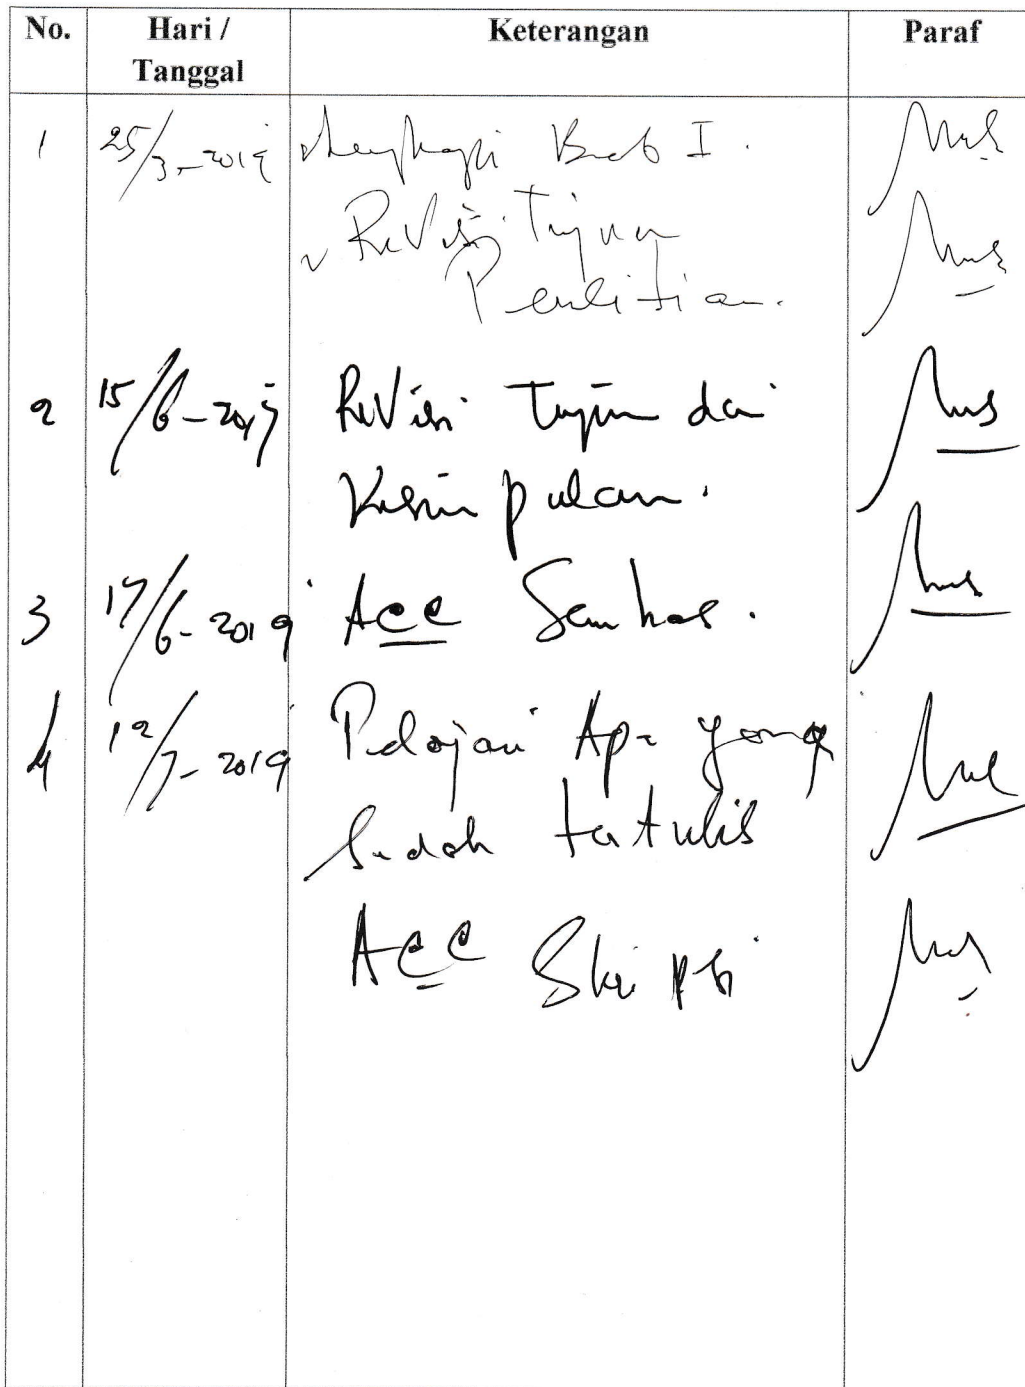 No. Hari / Tanggal Keterangan Paraf
1 25/3-2019 Bab I.
Revisi Tujuan
Penelitian.
2 15/6-2019 Revisi Tujuan dan
Kesimpulan.
3 17/6-2019 ACC Semhas.
4 12/7-2019 Pelajari Apa yang
Sudah tertulis
ACC Skripsi